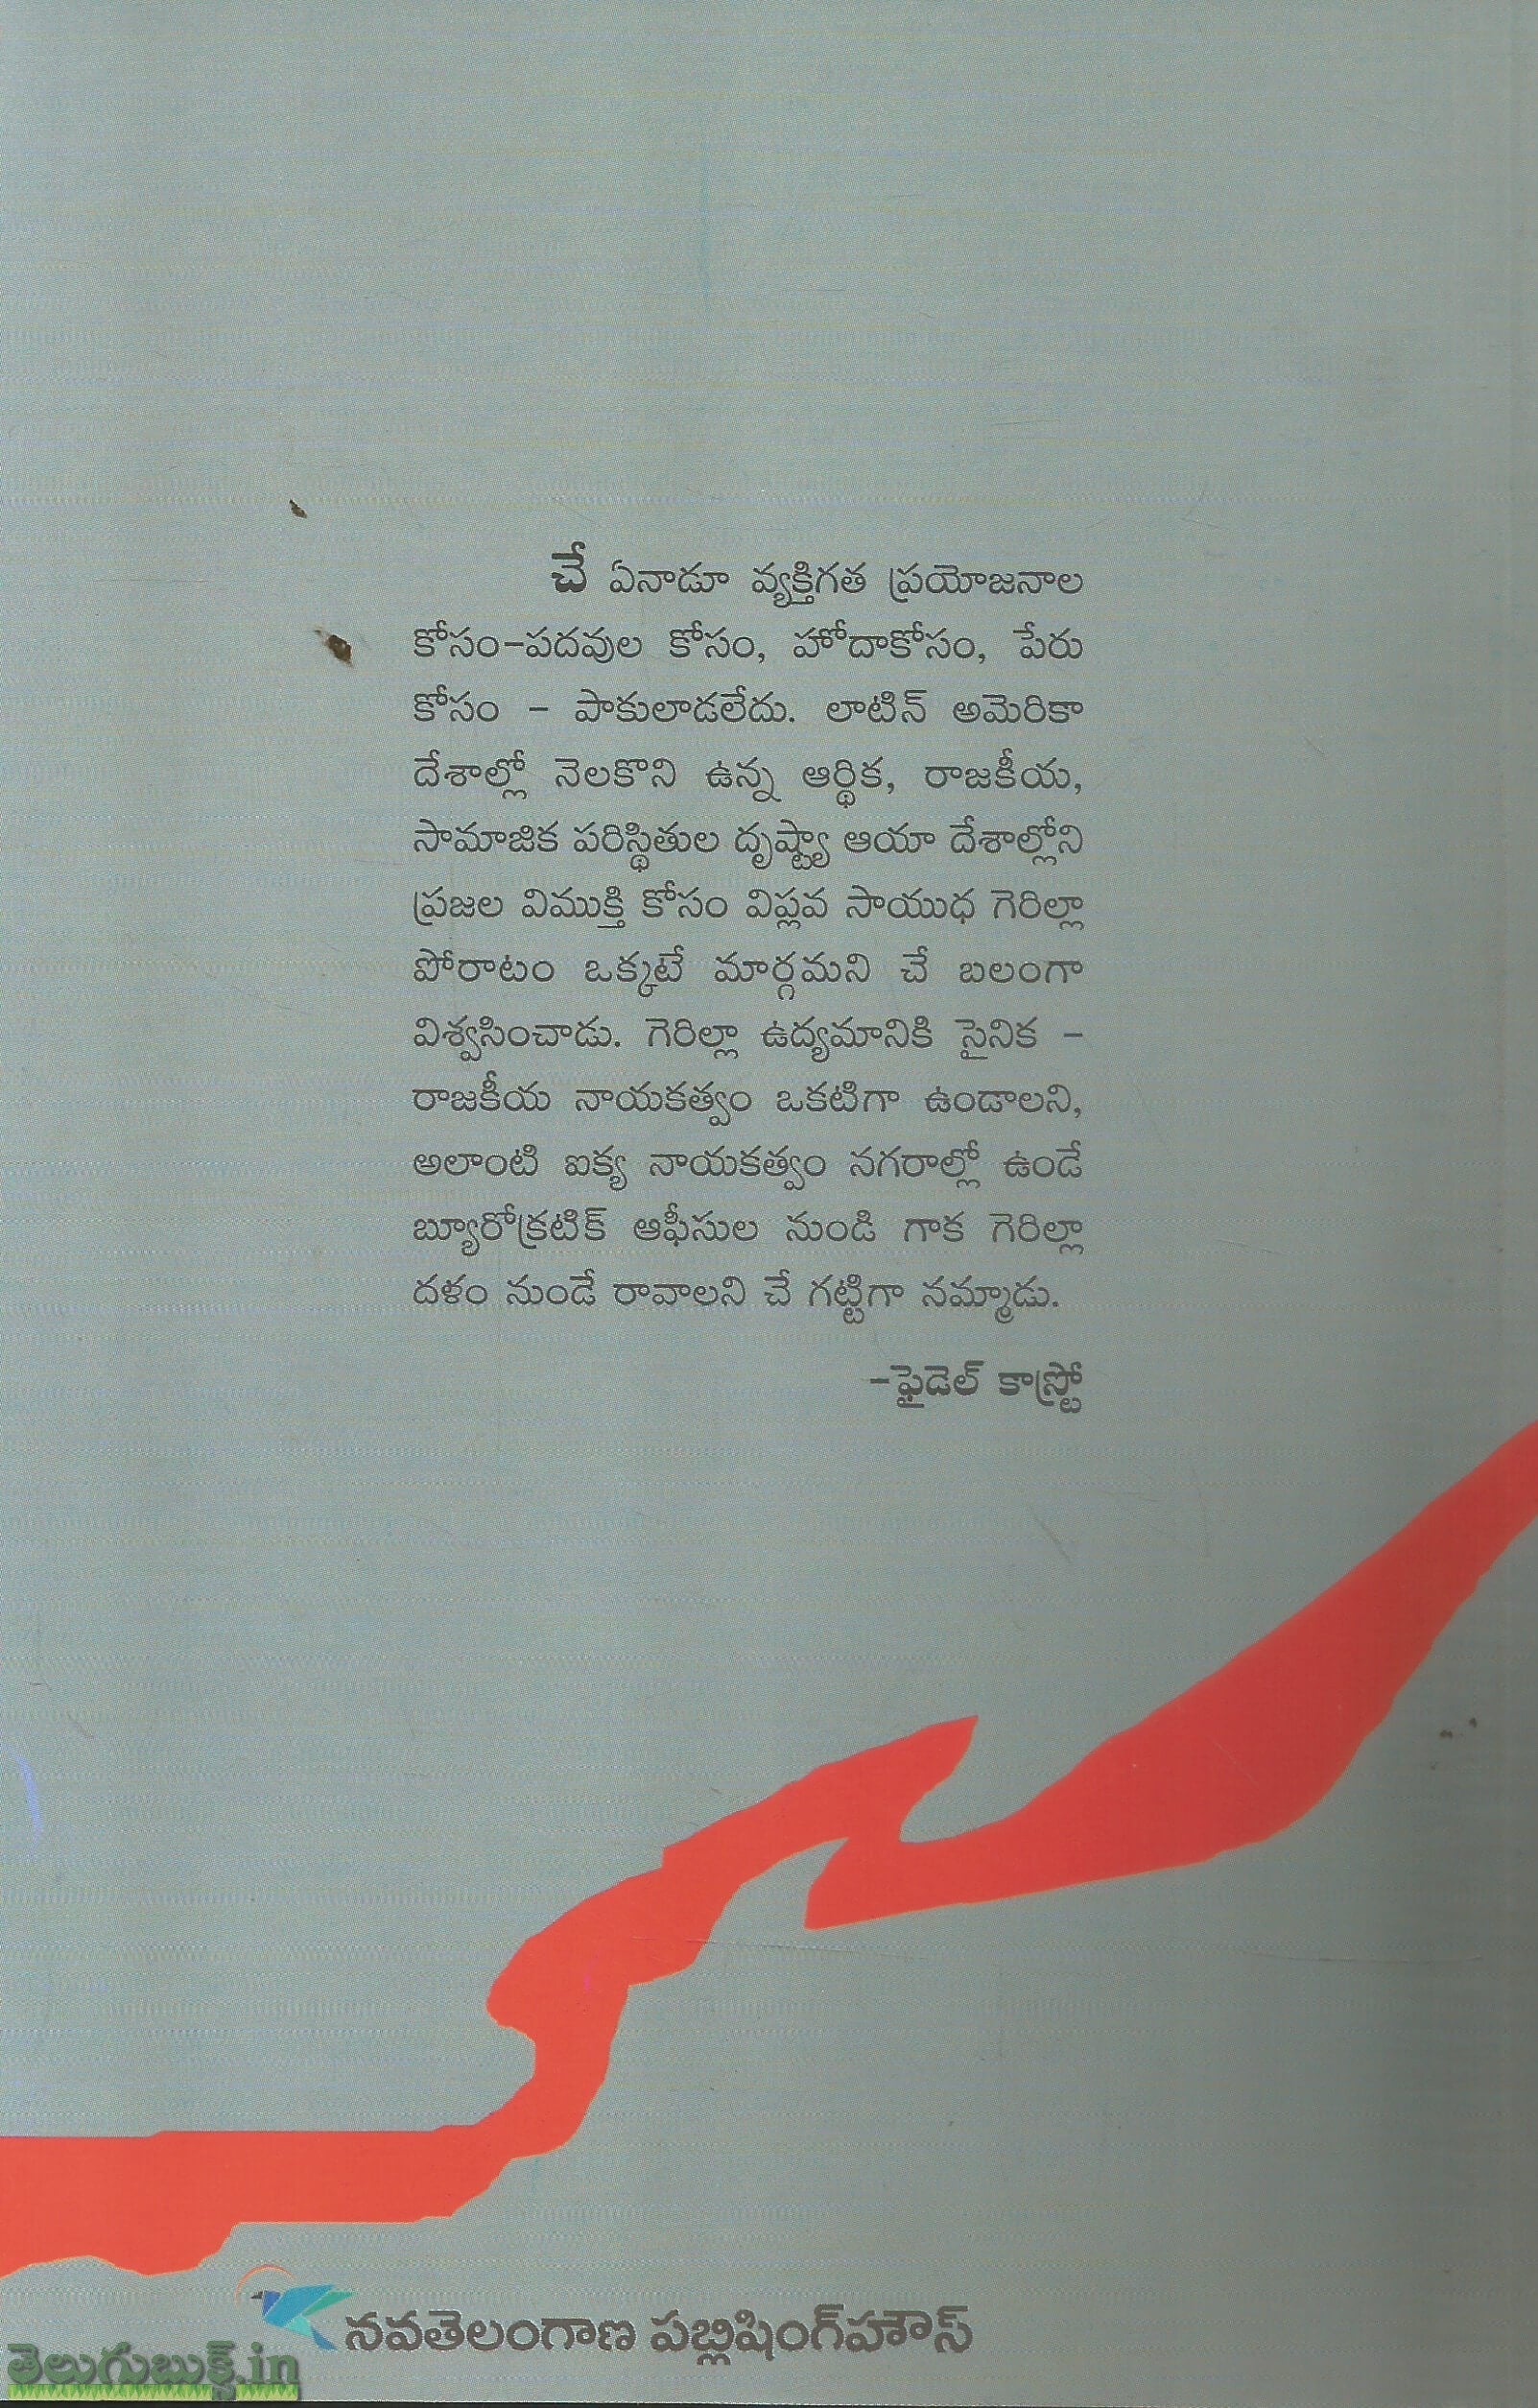 చే ఏనాడూ వ్యక్తిగత ప్రయోజనాల
కోసం-పదవుల కోసం, హోదాకోసం, పేరు
కోసం - పాకులాడలేదు. లాటిన్ అమెరికా
దేశాల్లో నెలకొని ఉన్న ఆర్థిక, రాజకీయ,
సామాజిక పరిస్థితుల దృష్ట్యా ఆయా దేశాల్లోని
ప్రజల విముక్తి కోసం విప్లవ సాయుధ గెరిల్లా
పోరాటం ఒక్కటే మార్గమని చే బలంగా
విశ్వసించాడు. గెరిల్లా ఉద్యమానికి సైనిక -
రాజకీయ నాయకత్వం ఒకటిగా ఉండాలని,
అలాంటి ఐక్య నాయకత్వం నగరాల్లో ఉండే
బ్యూరోక్రటిక్ ఆఫీసుల నుండి గాక గెరిల్లా
దళం నుండే రావాలని చే గట్టిగా నమ్మాడు.
-ఫైడెల్ కాస్ట్రో
నవతెలంగాణ పబ్లిషింగ్‌హౌస్
తెలుగుబుక్స్.in